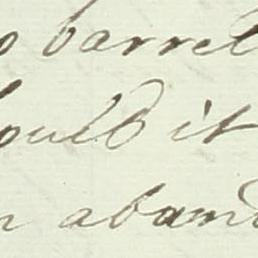 o barrel
ould it
n aband